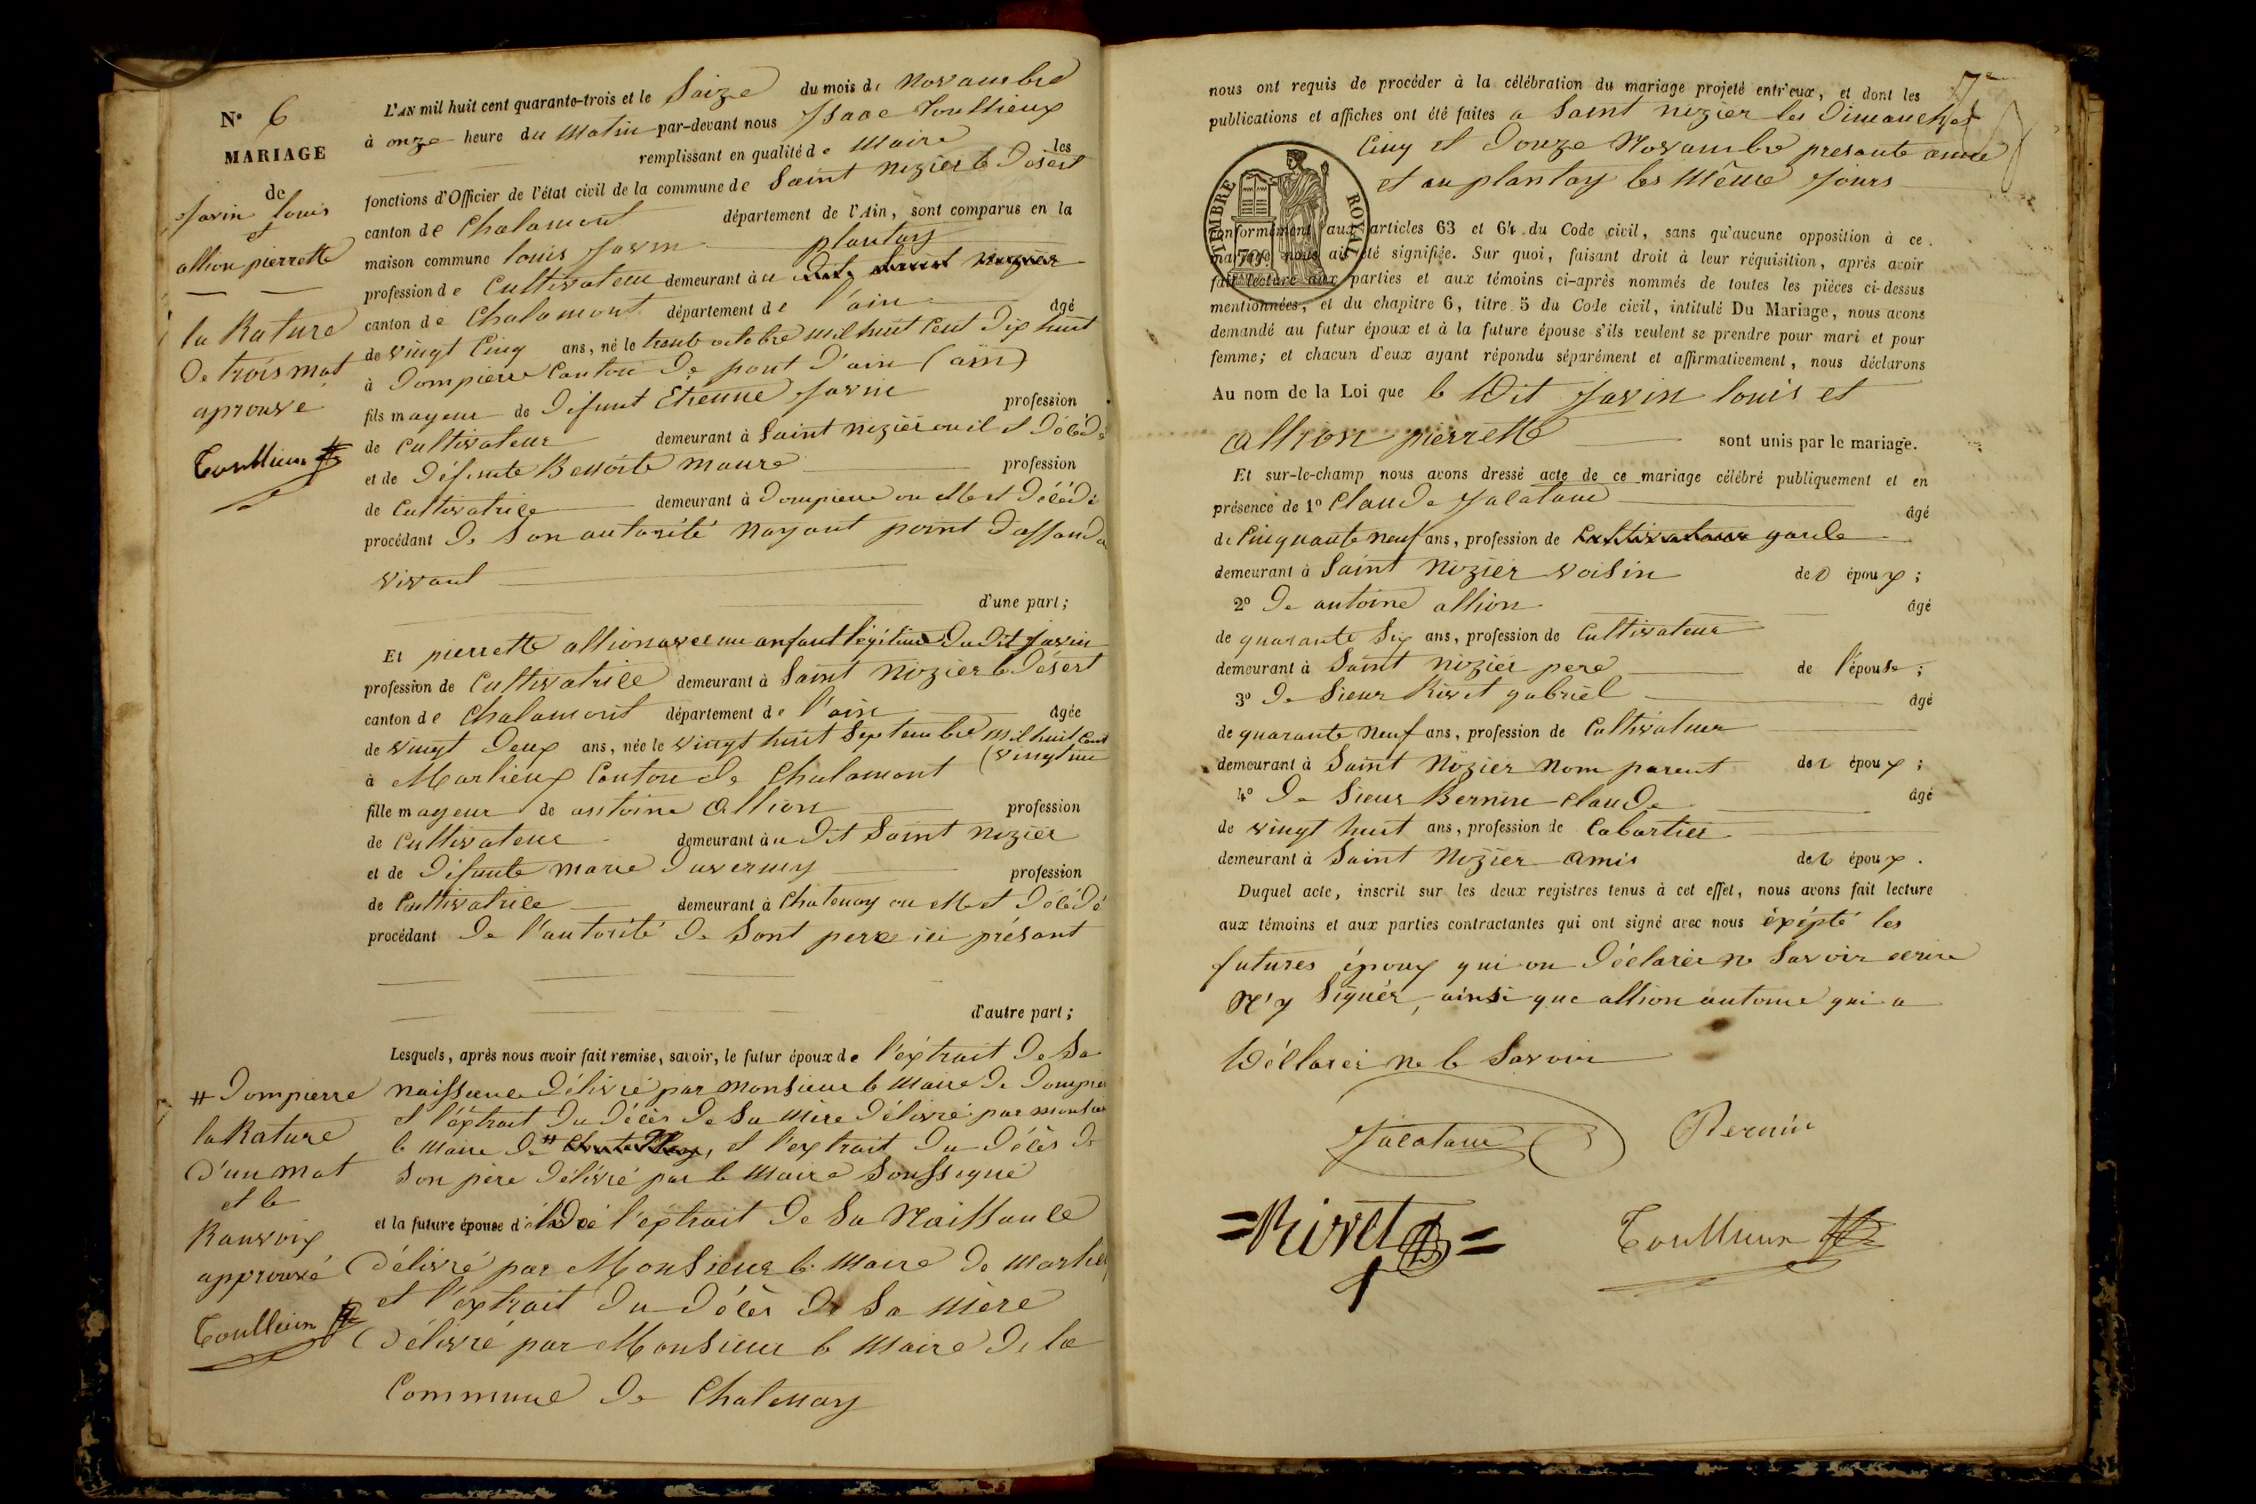 N° 6
MARIAGE
de
Javin louis
et
allion pierrette
la Rature
de trois mot
aprouvé
Toullieux
L'AN mil huit cent quarante-trois et le Saize du mois de Novambre
à onze heure du Matin par-devant nous Isaac Toullieux
remplissant en qualité de Maire les
fonctions d'Officier de l'état civil de la commune de Saint Nizier le Désert
canton de Chalamont département de l'Ain, sont comparus en la
maison commune louis Javin plantay
profession de Cultivateur demeurant au dit Saint Nizier
canton de Chalamont département de l'ain âgé
de vingt Cinq ans, né le trente octobre mil huit Cent Dix huit
à Dompierre Canton de pont d'ain (ain)
fils mayeur de Défunt Etienne Javin profession
de Cultivateur demeurant à Saint nizier ou il et Décédé
et de Défunte Benoite Maure profession
de Cultivatrice demeurant à Dompierre ou elle et Décédé
procédant de Son autorité Nayant point d'assandan
vivant
d'une part;
Et pierrette allion avec un anfant légitime du dit Javin
profession de Cultivatrice demeurant à Saint Nizier le Désert
canton de Chalamont département de l'ain âgée
de vingt Deux ans, née le vingt huit Septembre mil huit Cent
(vingt un
à Marlieux Canton de Chalamont
fille mayeur de antoine allion profession
de Cultivateur demeurant au Dit Saint Nizier
et de Défunte Marie Duverney profession
de Cultivatrice demeurant à Chatenay ou elle et Décédé
procédant de l'autorité de Sont pere ici présant
d'autre part;
Lesquels, après nous avoir fait remise, savoir, le futur époux de l'éxtrait de Sa
naissance Délivré par Monsieur le Maire de Dompier
et l'éxtrait du Décès de Sa Mère Délivré par Monsieur
le Maire de # , et l'extrait du Décès de
Son père Délivré par le Maire Soussigné
et la future épouse de l'extrait de Sa Naissance
Délivré par Monsieur le Maire de Marlieu
et l'éxtrait du Décès de Sa Mère
Délivré par Monsieur le Maire de la
Commune de Chatenay
# Dompierre
la Rature
d'un mot
et le
Ranvoix
approuvé
Toullieux
nous ont requis de procéder à la célébration du mariage projeté entr'eux, et dont les
publications et affiches ont été faites a Saint Nizier les Dimanches
Cinq et Douze Novambre presante année
et au plantay les Même Jours
TIMBRE ROYAL
conformément aux articles 63 et 64 du Code civil, sans qu'aucune opposition à ce
mariage nous ait été signifiée. Sur quoi, faisant droit à leur réquisition, après avoir
fait lecture aux parties et aux témoins ci-après nommés de toutes les pièces ci-dessus
mentionnées, et du chapitre 6, titre 5 du Code civil, intitulé Du Mariage, nous avons
demandé au futur époux et à la future épouse s'ils veulent se prendre pour mari et pour
femme; et chacun d'eux ayant répondu séparément et affirmativement, nous déclarons
Au nom de la Loi que le Dit Javin louis et
allion pierrette sont unis par le mariage.
Et sur-le-champ nous avons dressé acte de ce mariage célébré publiquement et en
présence de 1° Claude Jalatane âgé
de Cinquante neuf ans, profession de Cultivateur garde
demeurant à Saint Nizier voisin de époux;
2° De antoine allion âgé
de quarante Six ans, profession de Cultivateur
demeurant à Saint Nizier pere de l'épouse;
3° De Sieur Rivet gabriel âgé
de quarante Neuf ans, profession de Cultivateur
demeurant à Saint Nizier Nom parent de époux;
4° De Sieur Bernin Claude âgé
de vingt huit ans, profession de Cabartier
demeurant à Saint Nizier amis de époux.
Duquel acte, inscrit sur les deux registres tenus à cet effet, nous avons fait lecture
aux témoins et aux parties contractantes qui ont signé avec nous éxépté les
futures époux qui on Déclarér ne Savoir ecrire
N'y Signér, ainsi que allion antoine qui a
Déclarer ne le Savoir
Jalatane
Bernin
=Rivet=
Toullieux